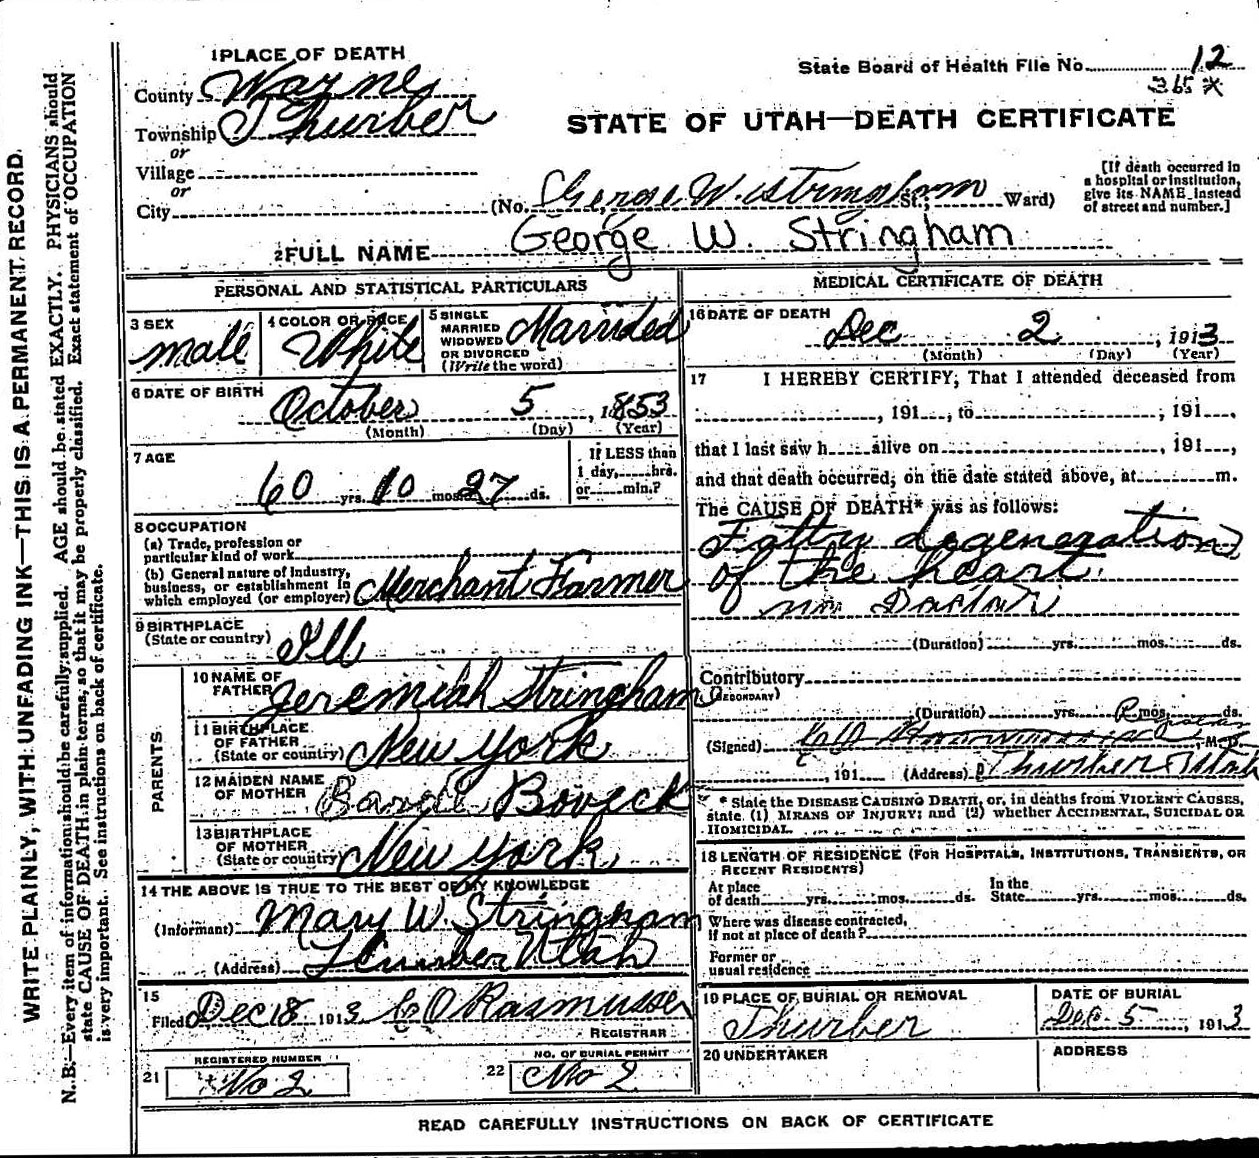 WRITE PLAINLY, WITH UNFADING INK—THIS IS A PERMANENT RECORD.
N. B.—Every item of information should be carefully supplied. AGE should be stated EXACTLY. PHYSICIANS should
state CAUSE OF DEATH in plain terms, so that it may be properly classified. Exact statement of OCCUPATION
is very important. See instructions on back of certificate.
1 PLACE OF DEATH
County Wayne
Township Thurber
or
Village
or
City
State Board of Health File No. 12
365 *
STATE OF UTAH—DEATH CERTIFICATE
(No. George W. Stringham St.; Ward)
[If death occurred in
a hospital or institution,
give its NAME instead
of street and number.]
2 FULL NAME George W. Stringham
PERSONAL AND STATISTICAL PARTICULARS
3 SEX
male
4 COLOR OR RACE
White
5 SINGLE
MARRIED
WIDOWED
OR DIVORCED
(Write the word)
Married
6 DATE OF BIRTH
October 5, 1853
(Month) (Day) (Year)
7 AGE
60 yrs. 10 mos. 27 ds.
If LESS than
1 day, hrs.
or min.?
8 OCCUPATION
(a) Trade, profession or
particular kind of work
(b) General nature of industry,
business, or establishment in
which employed (or employer) Merchant Farmer
9 BIRTHPLACE
(State or country) Ill
PARENTS
10 NAME OF
FATHER Jeremiah Stringham
11 BIRTHPLACE
OF FATHER
(State or country) New York
12 MAIDEN NAME
OF MOTHER Boveck
13 BIRTHPLACE
OF MOTHER
(State or country) New York
14 THE ABOVE IS TRUE TO THE BEST OF MY KNOWLEDGE
(Informant) Mary W. Stringham
(Address) Thurber Utah
15
Filed Dec 18 1913 C O Rasmussen
REGISTRAR
21 REGISTERED NUMBER
No 2
22 NO. OF BURIAL PERMIT
No 2
MEDICAL CERTIFICATE OF DEATH
16 DATE OF DEATH
Dec 2, 1913
(Month) (Day) (Year)
17 I HEREBY CERTIFY, That I attended deceased from
, 191 , to , 191 ,
that I last saw h alive on , 191 ,
and that death occurred, on the date stated above, at m.
The CAUSE OF DEATH* was as follows:
Fatty degeneration
of the heart.
(Duration) yrs. mos. ds.
Contributory
(SECONDARY)
(Duration) yrs. mos. ds.
(Signed)
, 191 (Address) Thurber Utah
* State the DISEASE CAUSING DEATH, or, in deaths from VIOLENT CAUSES,
state (1) MEANS OF INJURY; and (2) whether ACCIDENTAL, SUICIDAL OR
HOMICIDAL.
18 LENGTH OF RESIDENCE (FOR HOSPITALS, INSTITUTIONS, TRANSIENTS, OR
RECENT RESIDENTS)
At place
of death yrs. mos. ds.
In the
State yrs. mos. ds.
Where was disease contracted,
if not at place of death?
Former or
usual residence
19 PLACE OF BURIAL OR REMOVAL
Thurber
DATE OF BURIAL
Dec. 5, 1913
20 UNDERTAKER
ADDRESS
READ CAREFULLY INSTRUCTIONS ON BACK OF CERTIFICATE